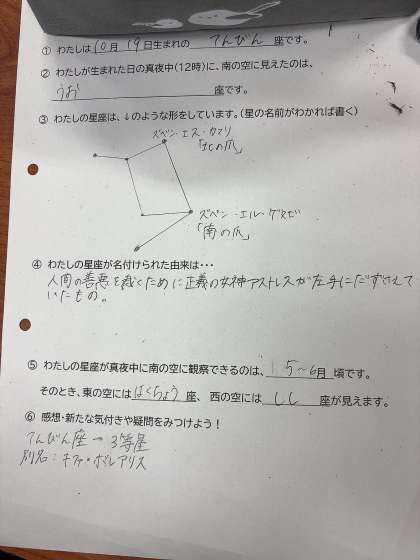 ① わたしは10月19日生まれの てんびん 座です。
② わたしが生まれた日の真夜中(12時)に、南の空に見えたのは、
うお 座です。
③ わたしの星座は、↓のような形をしています。(星の名前がわかれば書く)
ズベン・エス・カマリ
「北の爪」
ズベン・エル・ゲヌビ
「南の爪」
④ わたしの星座が名付けられた由来は・・・
人間の善悪を裁くために正義の女神アストレスが左手にたずさえて
いたもの。
⑤ わたしの星座が真夜中に南の空に観察できるのは、 5〜6月 頃です。
そのとき、東の空には はくちょう 座、 西の空には しし 座が見えます。
⑥ 感想・新たな気付きや疑問をみつけよう!
てんびん座→3等星
別名:キファ・ボレアリス